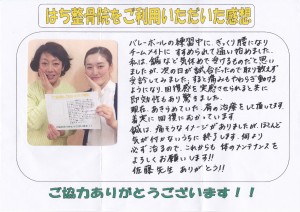 はち整骨院をご利用いただいた感想
バレーボールの練習中に ぎっくり腰になり
チームメイトに すすめられて通い始めました。
私は、鍼など気休めで受けるものだと思い
ましたが、次の日が試合だったので取り敢えず
受診してみました。すると痛みもやわらぎ動ける
ようになり、回復感を実感させられると共に
即効性もあり驚きました。
現在、あきらめていた、肩の治療をして頂いてます。
着実に回復に向かっています
鍼は、痛そうなイメージがありましたが、ほとんど
気が付かないうちに 終了します。何より
必ず治るので、これからも 体のメンテナンスを
よろしくお願いします!!
佐藤先生 ありがとう!!
ご協力ありがとうございます!!